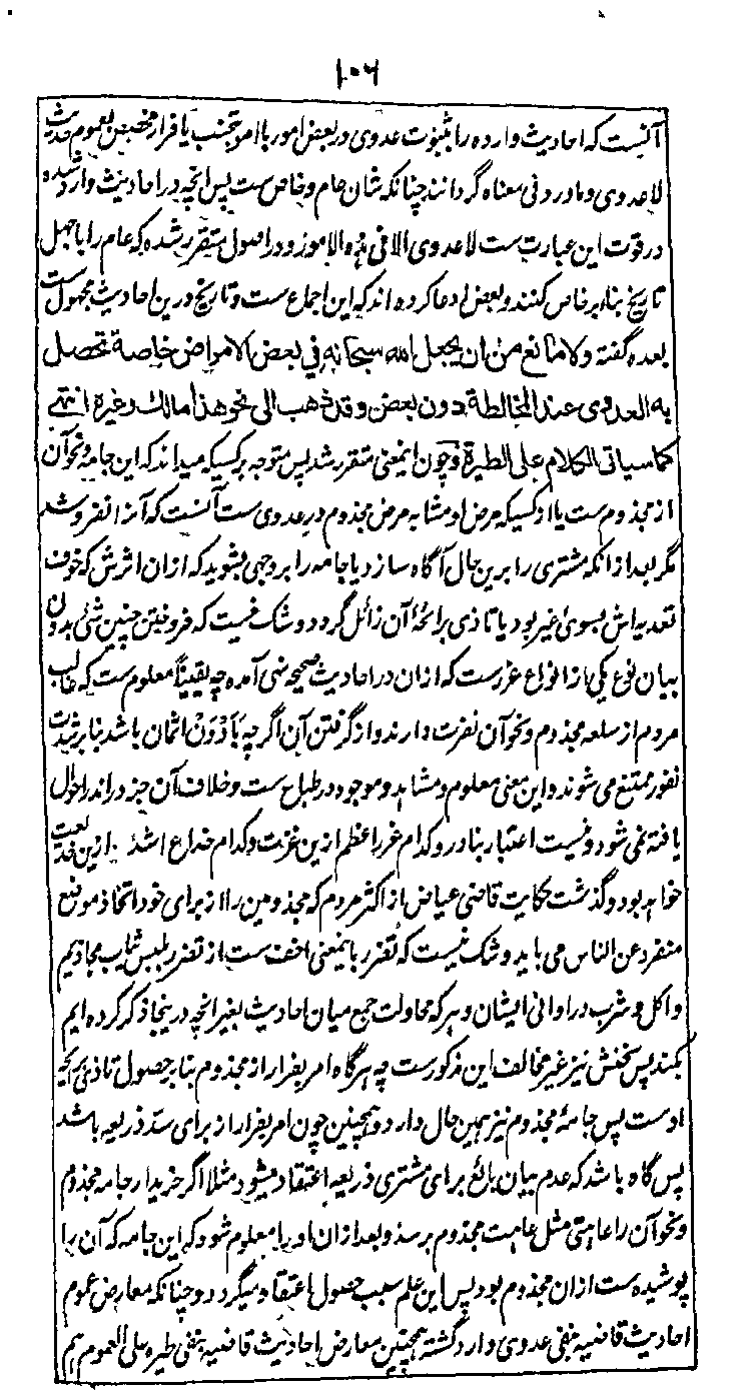 ۱۰۶
آنست که احادیث وارده را بثبوت عدوی در بعض امور یا امر بتجنب یا فرار مخصص بعموم حدیث
لا عدوی وما ورد فی معناه گردانند چنانکه شان عام و خاص ست پس انچه در احادیث وارد شده
در قوت این عبارت ست لا عدوی الا فی هذه الامور و در اصول متقرر شده که عام را با جهل
تاریخ بناء بر خاص کنند و بعض ادعا کرده اند که این اجماع ست و تاریخ درین احادیث مجهول ست
بعده گفته ولا مانع من ان یجعل الله سبحانه فی بعض الامراض خاصة تحصل
به العدوی عند المخالطة دون بعض وقد ذهب الی نحو هذا مالک وغیره انتهی
کما سیاتی الکلام علی الطیرة و چون اینمعنی متقرر شد پس متوجه بر کسیکه میداند که این جامه و نحو آن
از مجذوم ست یا از کسیکه مرض او مشابه مرض مجذوم در عدوی ست آنست که آنرا نفروشد
مگر بعد از انکه مشتری را برین حال آگاه سازد یا جامه را بر وجهی بشوید که ازان اثرش که خوف
تعدیه اش بسوی غیر بود یا تاذی برائحهٔ آن زائل گردد و شک نیست که فروختن چنین شئ بدون
بیان نوع یکی از انواع غرر ست که ازان در احادیث صحیحه نهی آمده چه یقیناً معلوم ست که غالب
مردم از سلعه مجذوم و نحو آن نفرت دارند و از گرفتن آن اگرچه بأدون اثمان باشد بنا بر شدت
نفور ممتنع می شوند و این معنی معلوم و مشاهد و موجود در طباع ست و خلاف آن جز در اندر احوال
یافته نمی شود و نیست اعتبار بنادر و کدام غرر اعظم ازین غررست و کدام خداع اشد ازین خدیعت
خواهد بود و گذشت حکایت قاضی عیاض از اکثر مردم که مجذومین را از برای خود اتخاذ موضع
منفرد عن الناس می باید و شک نیست که تضرر باینمعنی اخف ست از تضرر بلبس ثیاب مجاذیم
و اکل و شرب در اوانی ایشان و هر که محاولت جمع میان احادیث بغیر انچه درینجا ذکر کرده ایم
بکند پس سخنش نیز غیر مخالف این مذکورست چه هرگاه امر بفرار از مجذوم بنا بر حصول تاذی بریح
اوست پس جامهٔ مجذوم نیز همین حال دارد و همچنین چون امر بفرار از برای سد ذریعه باشد
پس گاه باشد که عدم بیان بائع برای مشتری ذریعه اعتقاد میشود مثلا اگر خریدار جامه مجذوم
و نحو آن را عاهتی مثل عاهت مجذوم برسد و بعد ازان او را معلوم شود که این جامه که آن را
پوشیده ست ازان مجذوم بود پس این علم سبب حصول اعتقاد میگردد و چنانکه معارض عموم
احادیث قاضیه بنفی عدوی وارد گشته همچنین معارض احادیث قاضیه بنفی طیره علی العموم هم